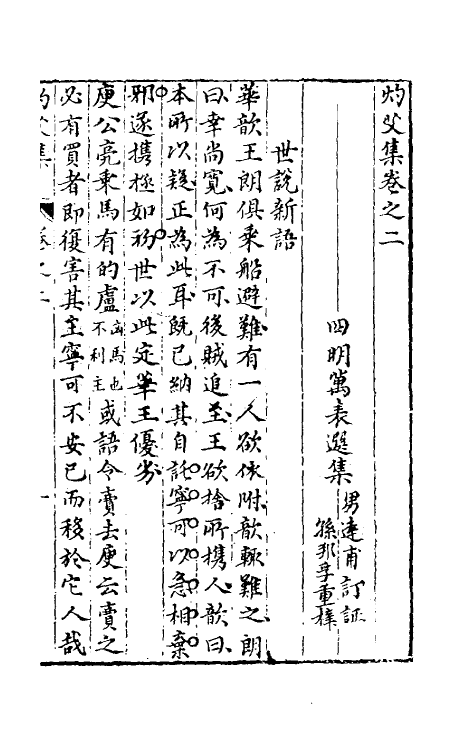 灼艾集卷之二
四明萬表選集
男達甫訂証
孫邦孚重梓
世說新語
華歆王朗俱乘船避難有一人欲依附歆輒難之朗
曰幸尚寬何為不可後賊追至王欲捨所攜人歆曰
本所以疑正為此耳既已納其自託寧可以急相棄
邪遂攜拯如初世以此定華王優劣
庾公亮乘馬有的盧凶馬也不利主或語令賣去庾云賣之
必有買者即復害其主寧可不安已而移於它人哉
灼艾集 卷之二 一